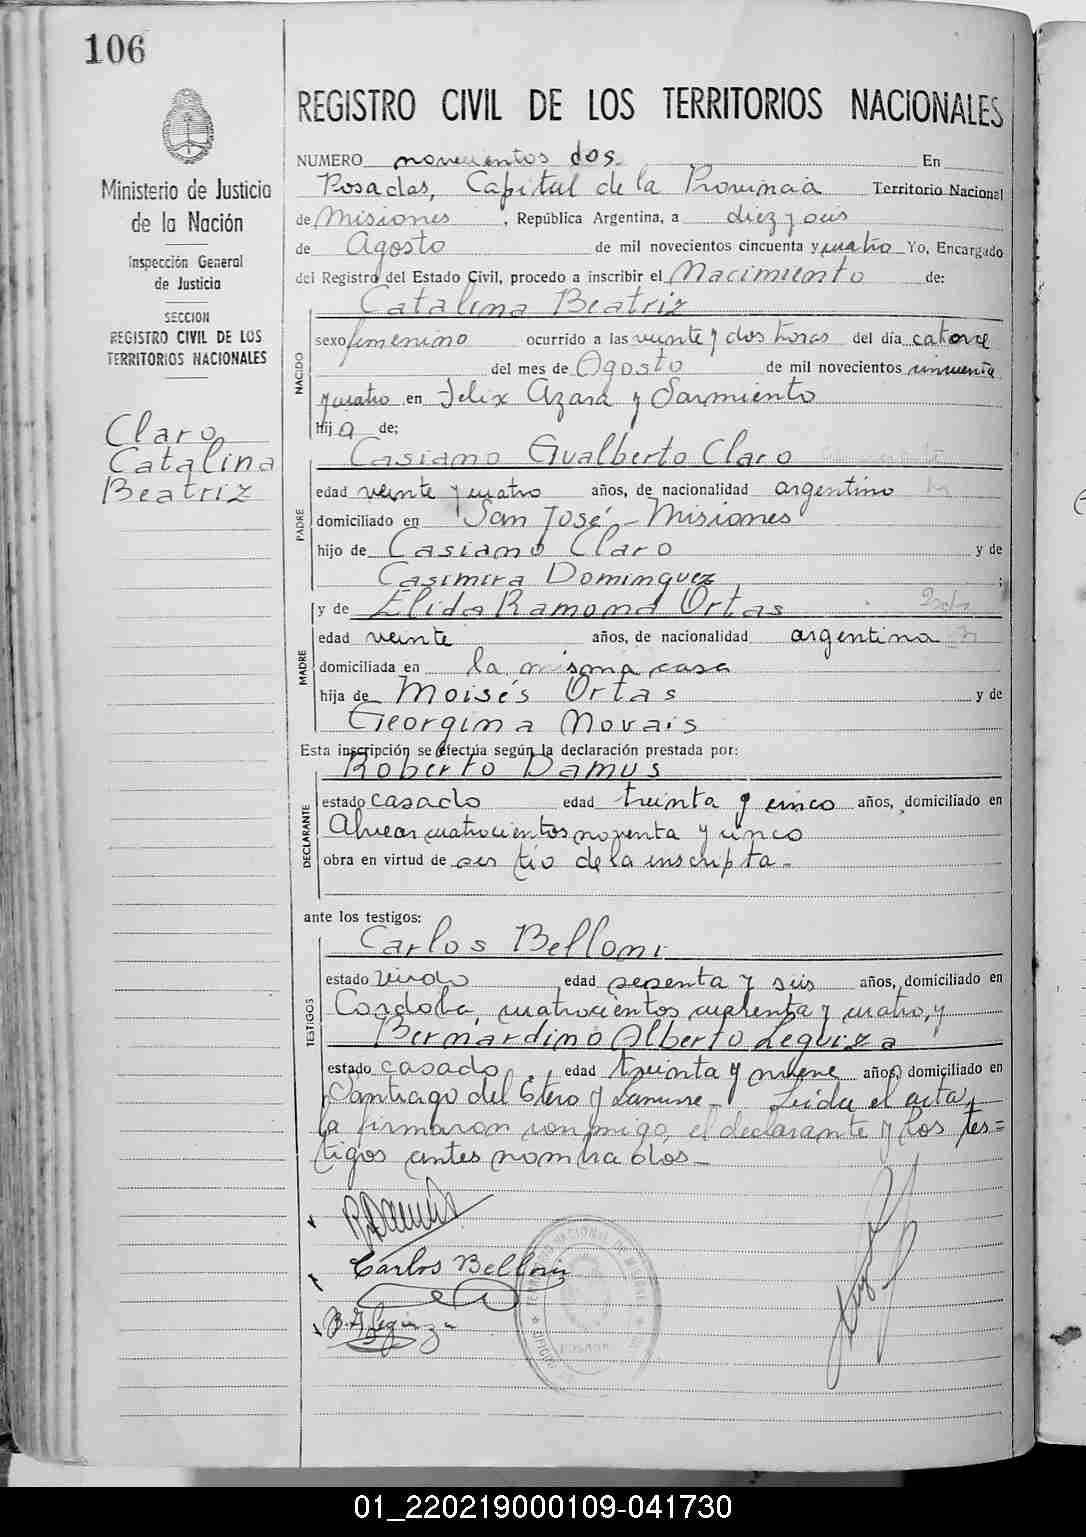 106
Ministerio de Justicia
de la Nación
Inspección General
de Justicia
SECCION
REGISTRO CIVIL DE LOS
TERRITORIOS NACIONALES
Claro
Catalina
Beatriz
REGISTRO CIVIL DE LOS TERRITORIOS NACIONALES
NUMERO novecientos dos En
Posadas, Capital de la Provincia Territorio Nacional
de Misiones, República Argentina, a diez y seis
de Agosto de mil novecientos cincuenta y cuatro Yo, Encargado
del Registro del Estado Civil, procedo a inscribir el Nacimiento de:
Catalina Beatriz
NACIDO
sexo femenino ocurrido a las veinte y dos horas del día catorce
del mes de Agosto de mil novecientos cincuenta
y cuatro en Felix Azara y Sarmiento
hija de:
Casiano Gualberto Claro
PADRE
edad veinte y cuatro años, de nacionalidad argentino
domiciliado en San José - Misiones
hijo de Casiano Claro y de
Casimira Dominguez;
y de Elida Ramona Ortas
MADRE
edad veinte años, de nacionalidad argentina
domiciliada en la misma casa
hija de Moisés Ortas y de
Georgina Novais
Esta inscripción se efectúa según la declaración prestada por:
Roberto Damus
DECLARANTE
estado casado edad treinta y cinco años, domiciliado en
Alvear cuatrocientos noventa y cinco
obra en virtud de ser tío de la inscripta -
ante los testigos:
Carlos Belloni
TESTIGOS
estado viudo edad sesenta y seis años, domiciliado en
Cordoba, cuatrocientos cuarenta y cuatro, y
Bernardino Alberto Leguiza
estado casado, edad treinta y nueve años, domiciliado en
Santiago del Estero y Lanusse - Leida el acta,
la firmaron conmigo, el declarante y los tes=
tigos antes nombrados -
RDamus
Carlos Belloni
B. A. Leguiza
01_220219000109-041730